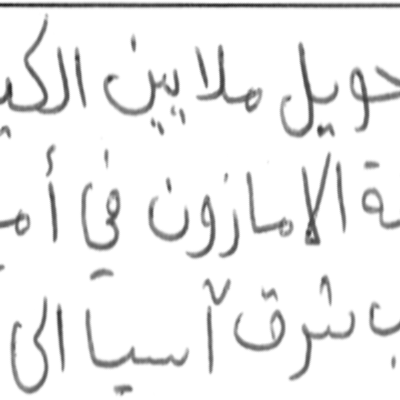 حويل ملايين الكي
ة الامازون في أم
ب شرق آسيا الى